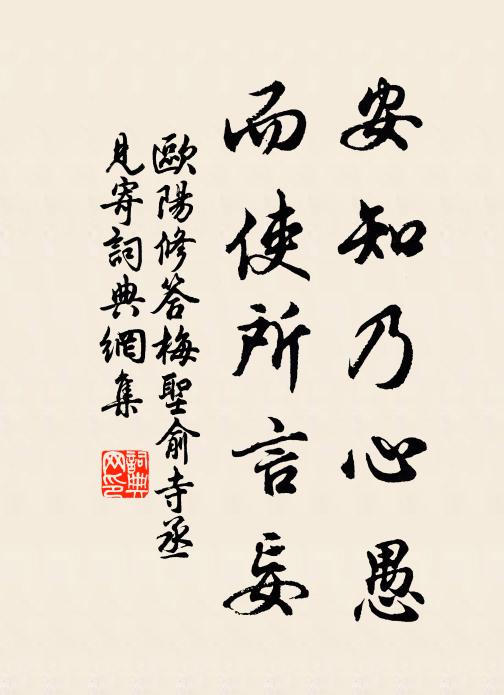 安知乃心愚
而使所言妄
歐陽修答梅聖俞寺丞
見寄詞典網集
詞典
网印